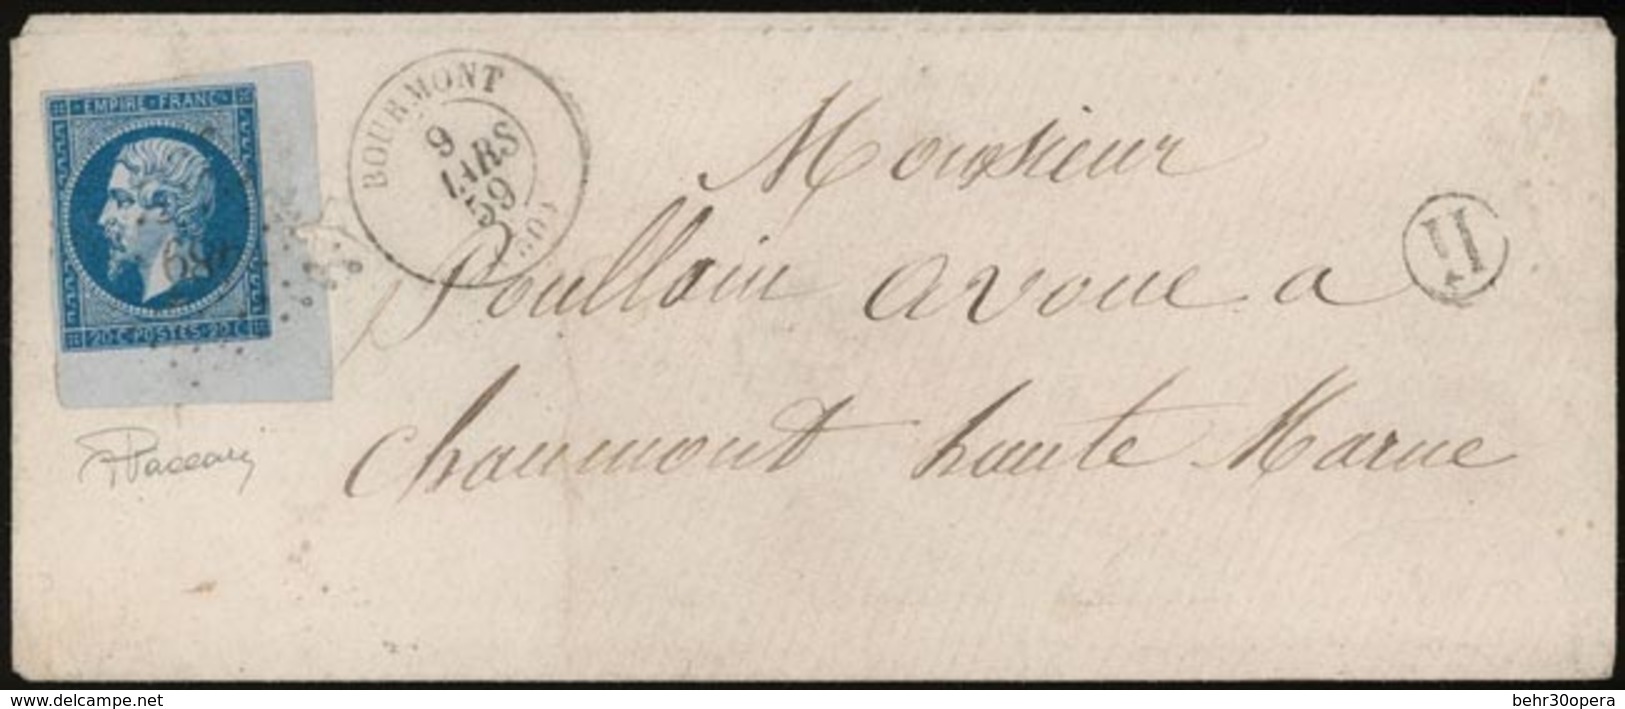 EMPIRE FRANC
20 C POSTES 20 C
BOURMONT
9
MARS
59
H
Monsieur
Poullain avoue a
Chaumont haute Marne
delcampe.net
behr30opera